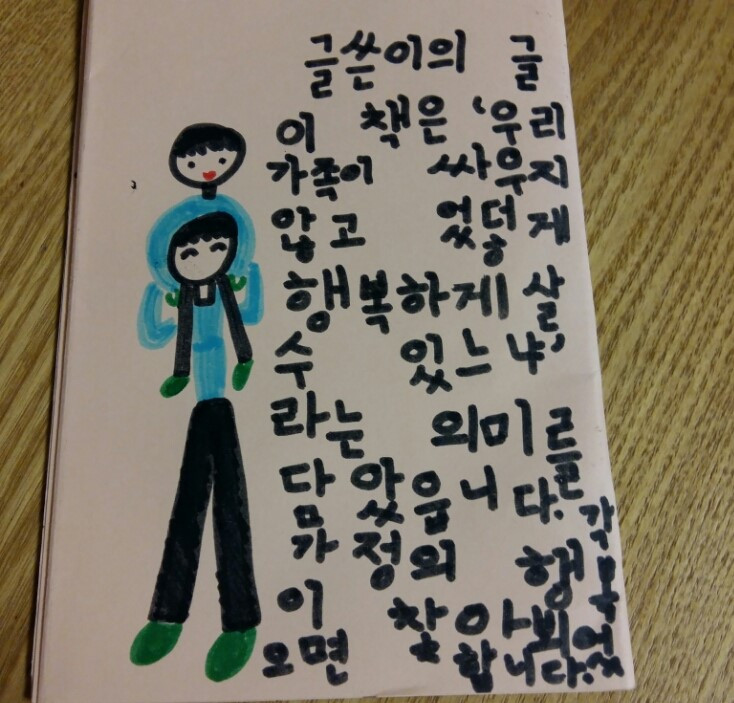 글쓴이의 글
이 책은 '우리
가족이 싸우지
않고 었덯게
행복하게 살
수 있느냐'
라는 의미를
담았읍니다. 각
가정의 행복
이 찾아뵈었
으면 합니다.